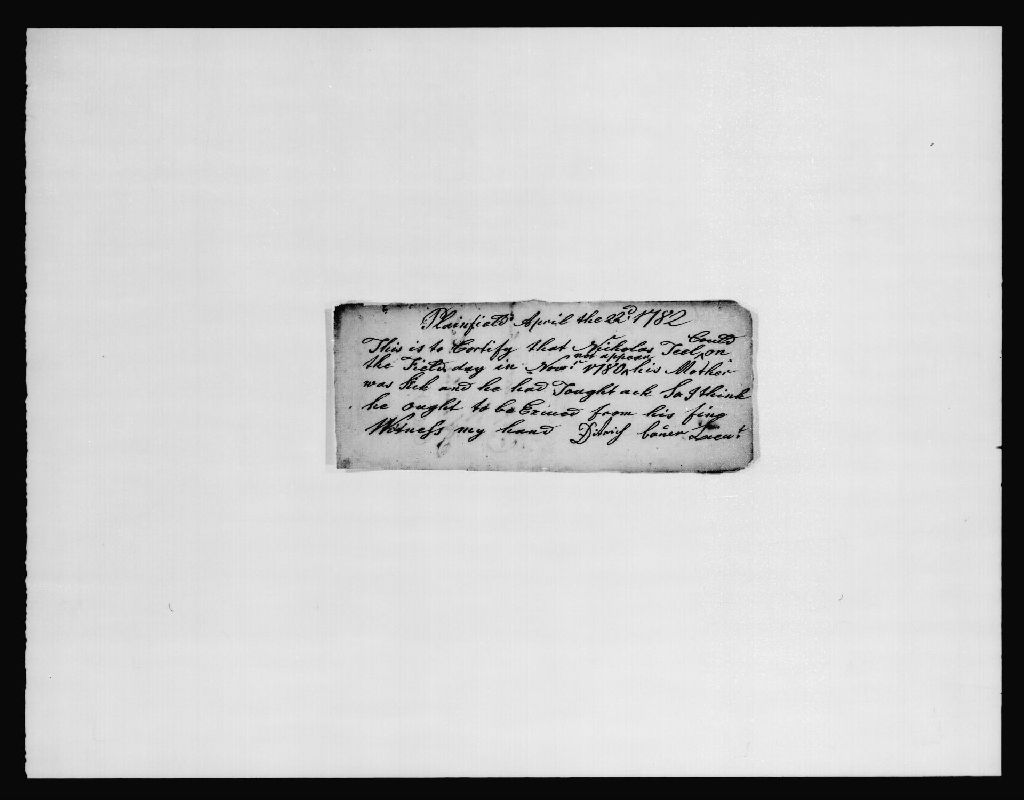 Plainfield April the 22d 1782
This is to Certify that Nicholas Teel Could
not appear on
the Field day in Novr 1780 his Mother
was Sick and he had Tought ack So I think
he ought to be Exiued from his fine
Witness my hand Ditrich Lieut